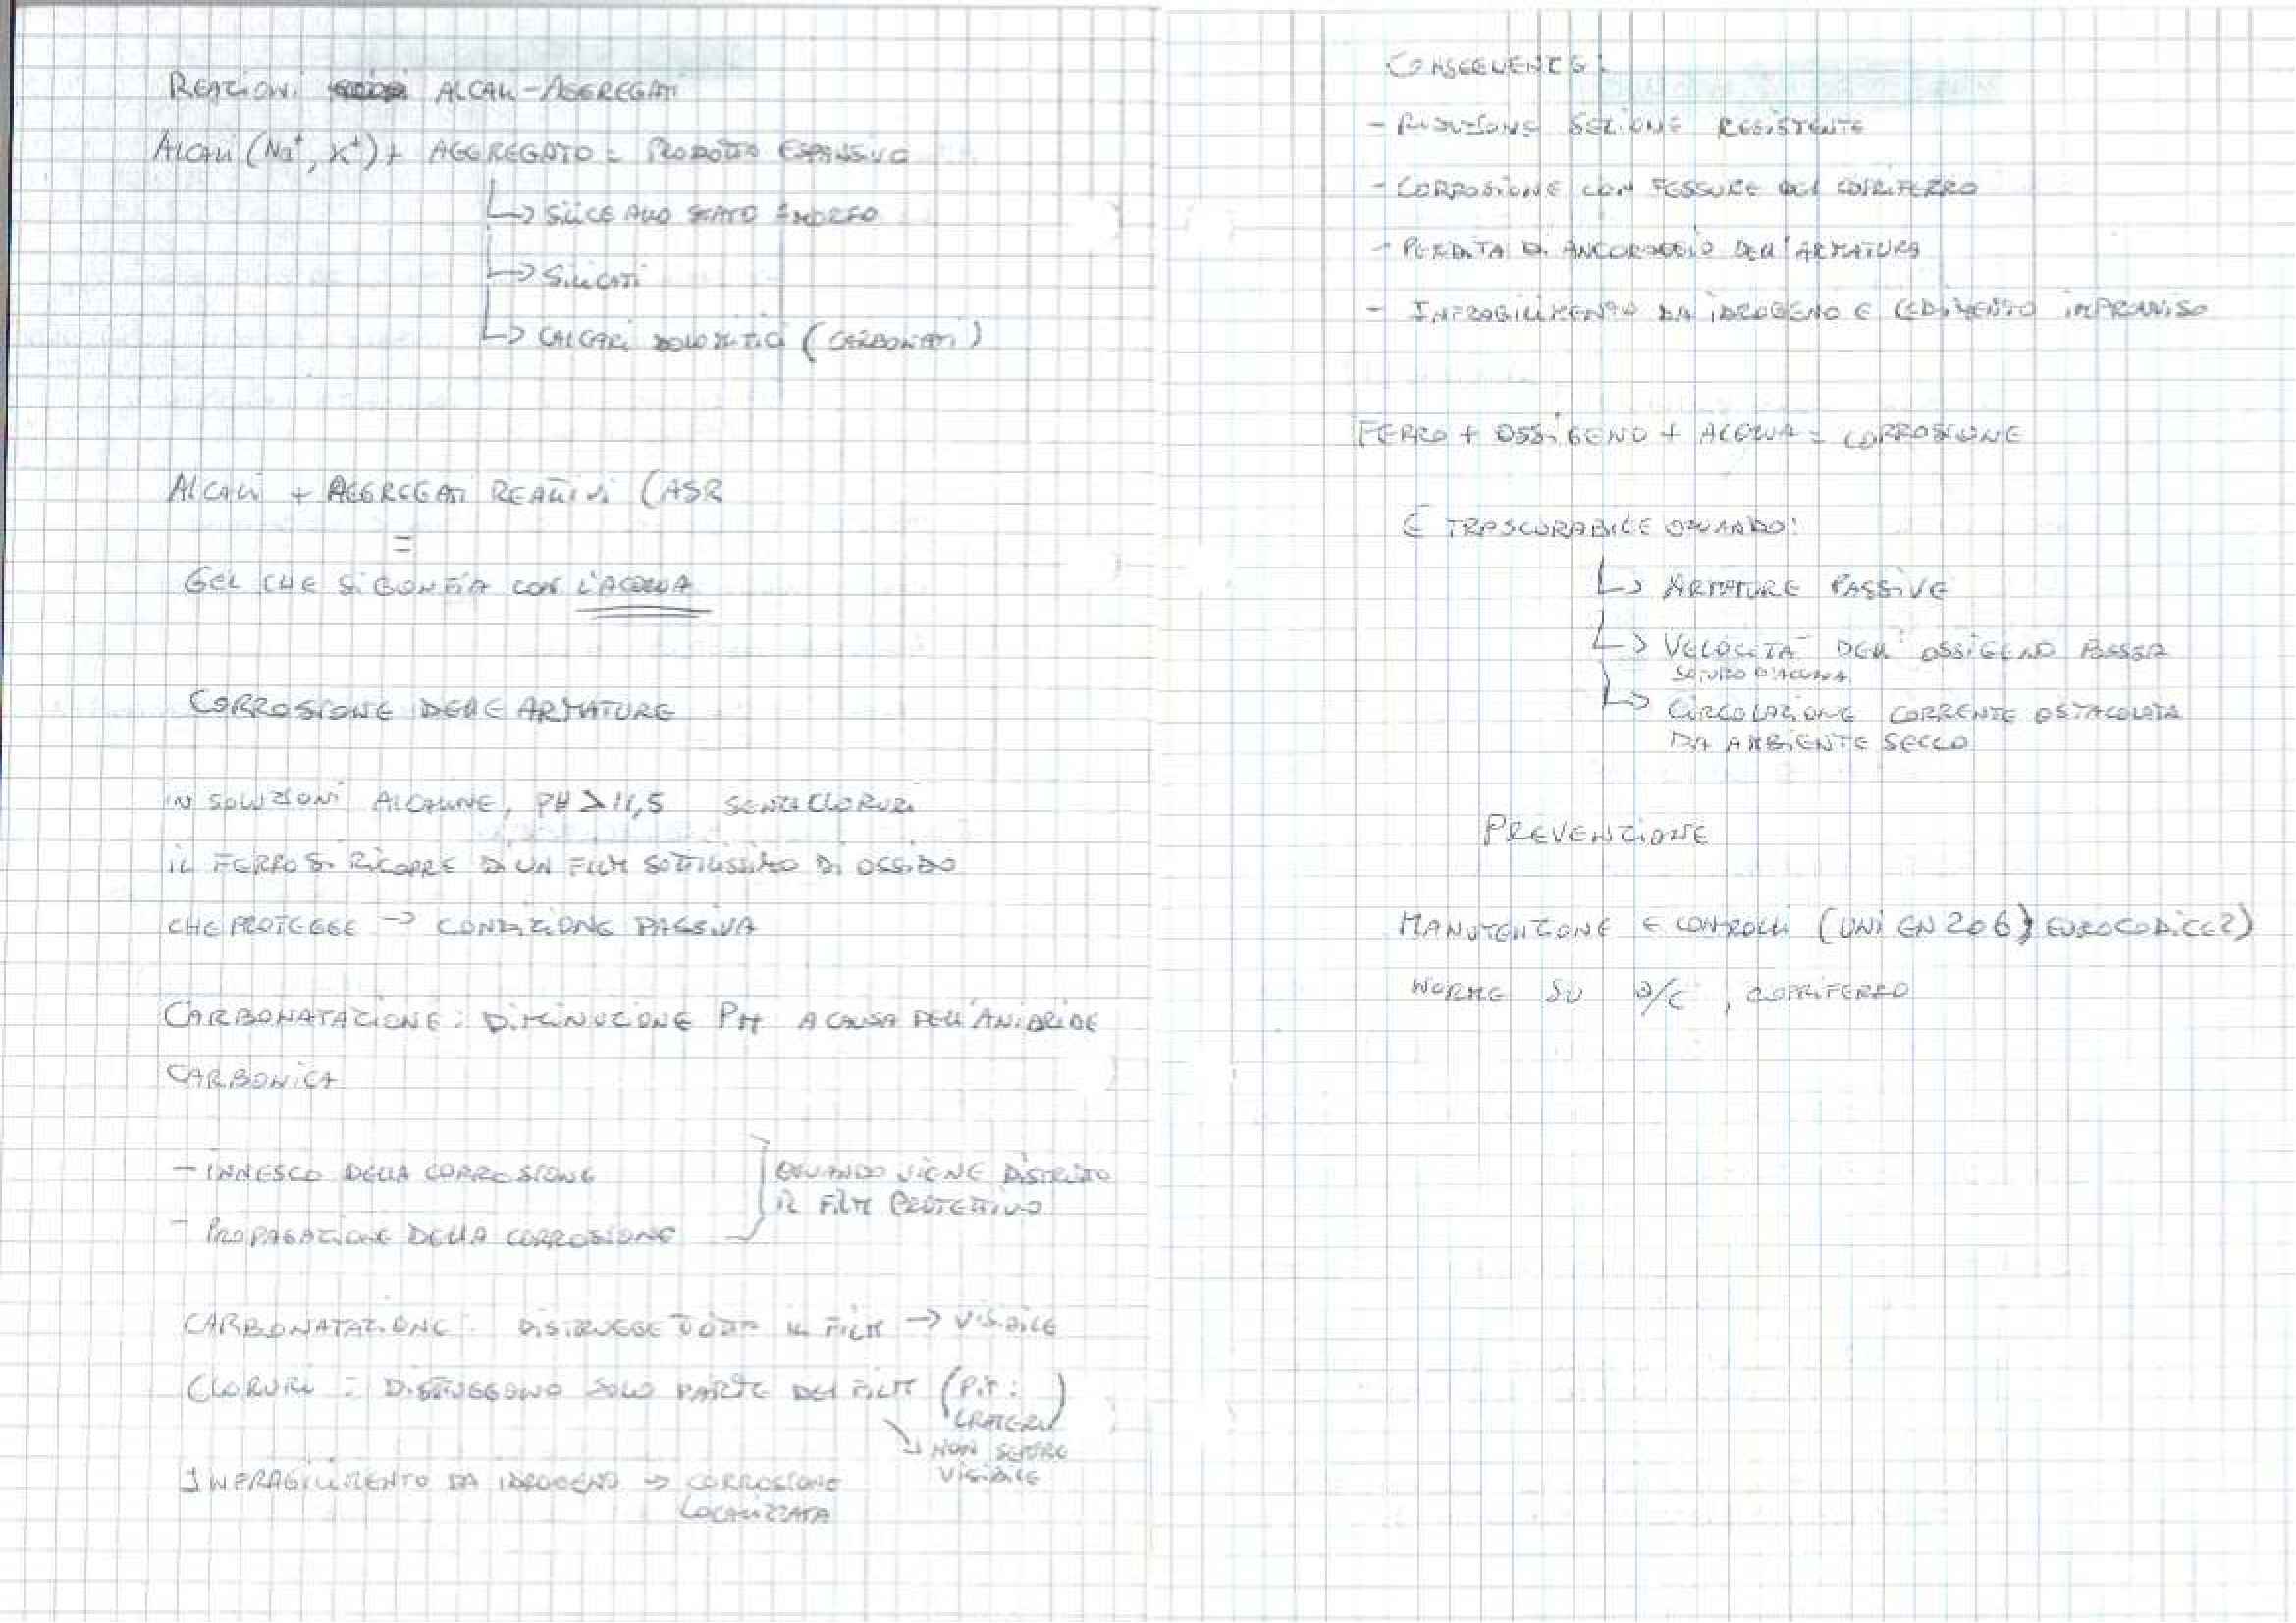 REAZIONI ALCALI-AGGREGATI
ALCALI (Na⁺, K⁺) + AGGREGATO = PRODOTTO ESPANSIVO
↳ SILICE ALLO STATO AMORFO
↳ SILICATI
↳ CALCARI DOLOMITICI (CARBONATI)
ALCALI + AGGREGATI REATTIVI (ASR
=
GEL CHE SI GONFIA CON L'ACQUA
CORROSIONE DELLE ARMATURE
IN SOLUZIONI ALCALINE, PH > 11,5 SENZA CLORURI
IL FERRO SI RICOPRE DI UN FILM SOTTILISSIMO DI OSSIDO
CHE PROTEGGE → CONDIZIONE PASSIVA
CARBONATAZIONE: DIMINUZIONE PH A CAUSA DELL'ANIDRIDE
CARBONICA
- INNESCO DELLA CORROSIONE
- PROPAGAZIONE DELLA CORROSIONE
QUANDO VIENE DISTRUTTO
IL FILM PROTETTIVO
CARBONATAZIONE: DISTRUGGE TUTTO IL FILM → VISIBILE
CLORURI: DISTRUGGONO SOLO PARTE DEL FILM (PIT:
CRATERI)
↘ NON SEMPRE
VISIBILE
INFRAGILIMENTO DA IDROGENO → CORROSIONE
LOCALIZZATA
CONSEGUENZE:
- RIDUZIONE SEZIONE RESISTENTE
- CORROSIONE CON FESSURE DEL COPRIFERRO
- PERDITA DI ANCORAGGIO DELL'ARMATURA
- INFRAGILIMENTO DA IDROGENO E CEDIMENTO IMPROVVISO
FERRO + OSSIGENO + ACQUA = CORROSIONE
È TRASCURABILE QUANDO:
↳ ARMATURE PASSIVE
↳ VELOCITÀ DELL'OSSIGENO BASSA
D'ACQUA
↳ CIRCOLAZIONE CORRENTE OSTACOLATA
DA AMBIENTE SECCO
PREVENZIONE
MANUTENZIONE E CONTROLLI (UNI EN 206; EUROCODICE 2)
NORME SU a/c, COPRIFERRO